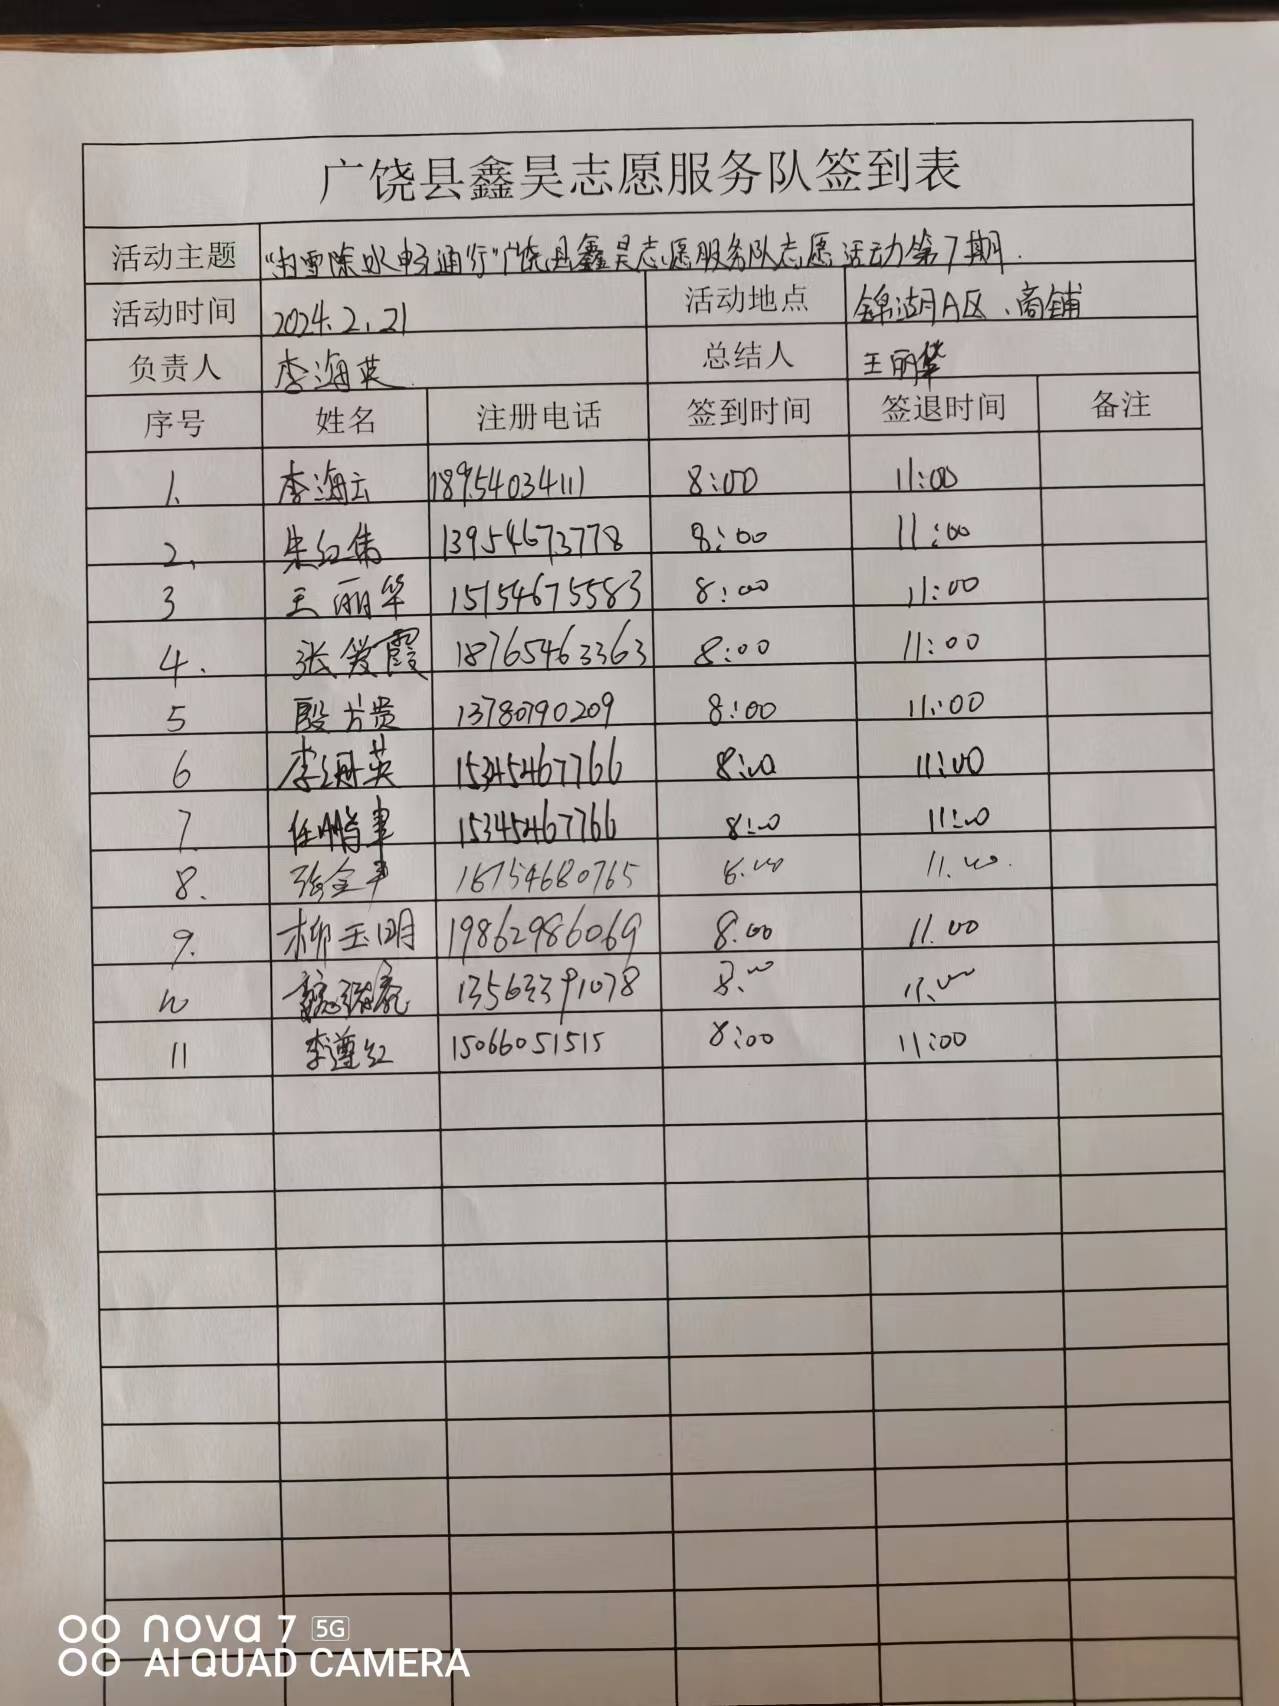 广饶县鑫昊志愿服务队签到表
活动主题 "扫雪除冰畅通行"广饶县鑫昊志愿服务队志愿活动第7期.
活动时间 2024.2.21 活动地点 锦湖A区、商铺
负责人 李海英 总结人 王丽华
序号 姓名 注册电话 签到时间 签退时间 备注
1. 李海云 18954034111 8:00 11:00
2. 朱红伟 13954673778 8:00 11:00
3 王丽华 15154675583 8:00 11:00
4. 张爱霞 18765463363 8:00 11:00
5 殷方贵 13780790209 8:00 11:00
6 李海英 15345467766 8:00 11:00
7. 任鹏 15345467766 8:00 11:00
8. 张金 18754680765 8:00 11.00.
9. 柳玉明 19862986069 8.00 11.00
10 13563391078 8.00 11.00
11 李遵红 15066051515 8:00 11:00
nova 7 5G
AI QUAD CAMERA